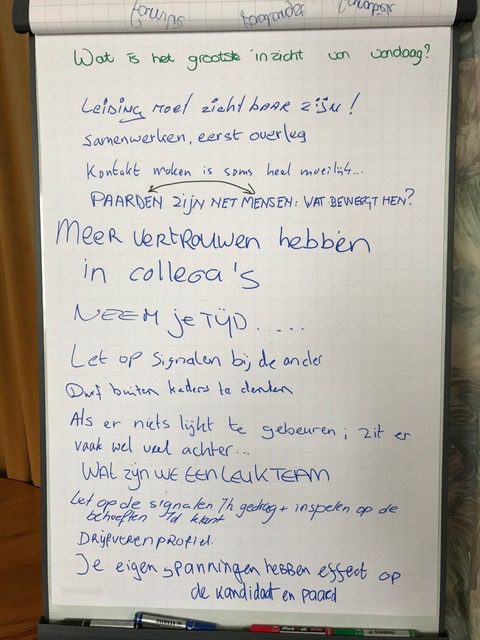 Wat is het grootste inzicht van vandaag?
LEIDING MOET zichtbaar zijn!
Samenwerken, eerst overleg
Kontakt maken is soms heel moeilijk...
PAARDEN ZIJN NET MENSEN: WAT BEWEEGT HEN?
Meer vertrouwen hebben
in collega's
NEEM je TIJD .....
Let op signalen bij de ander
Durf buiten kaders te denken
Als er niets lijkt te gebeuren; zit er
vaak wel veel achter...
WAT ZIJN WE EEN LEUK TEAM
Let op de signalen /h gedrag + inspelen op de
behoeften v/d klant
DRIJFVERENPROFIEL.
Je eigen spanningen hebben effect op
de kandidaat en paard